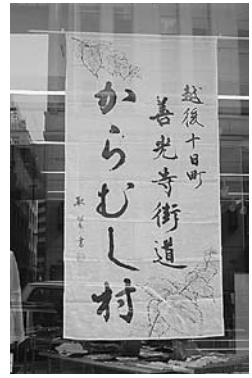 越後十日町
善光寺街道
からむし村